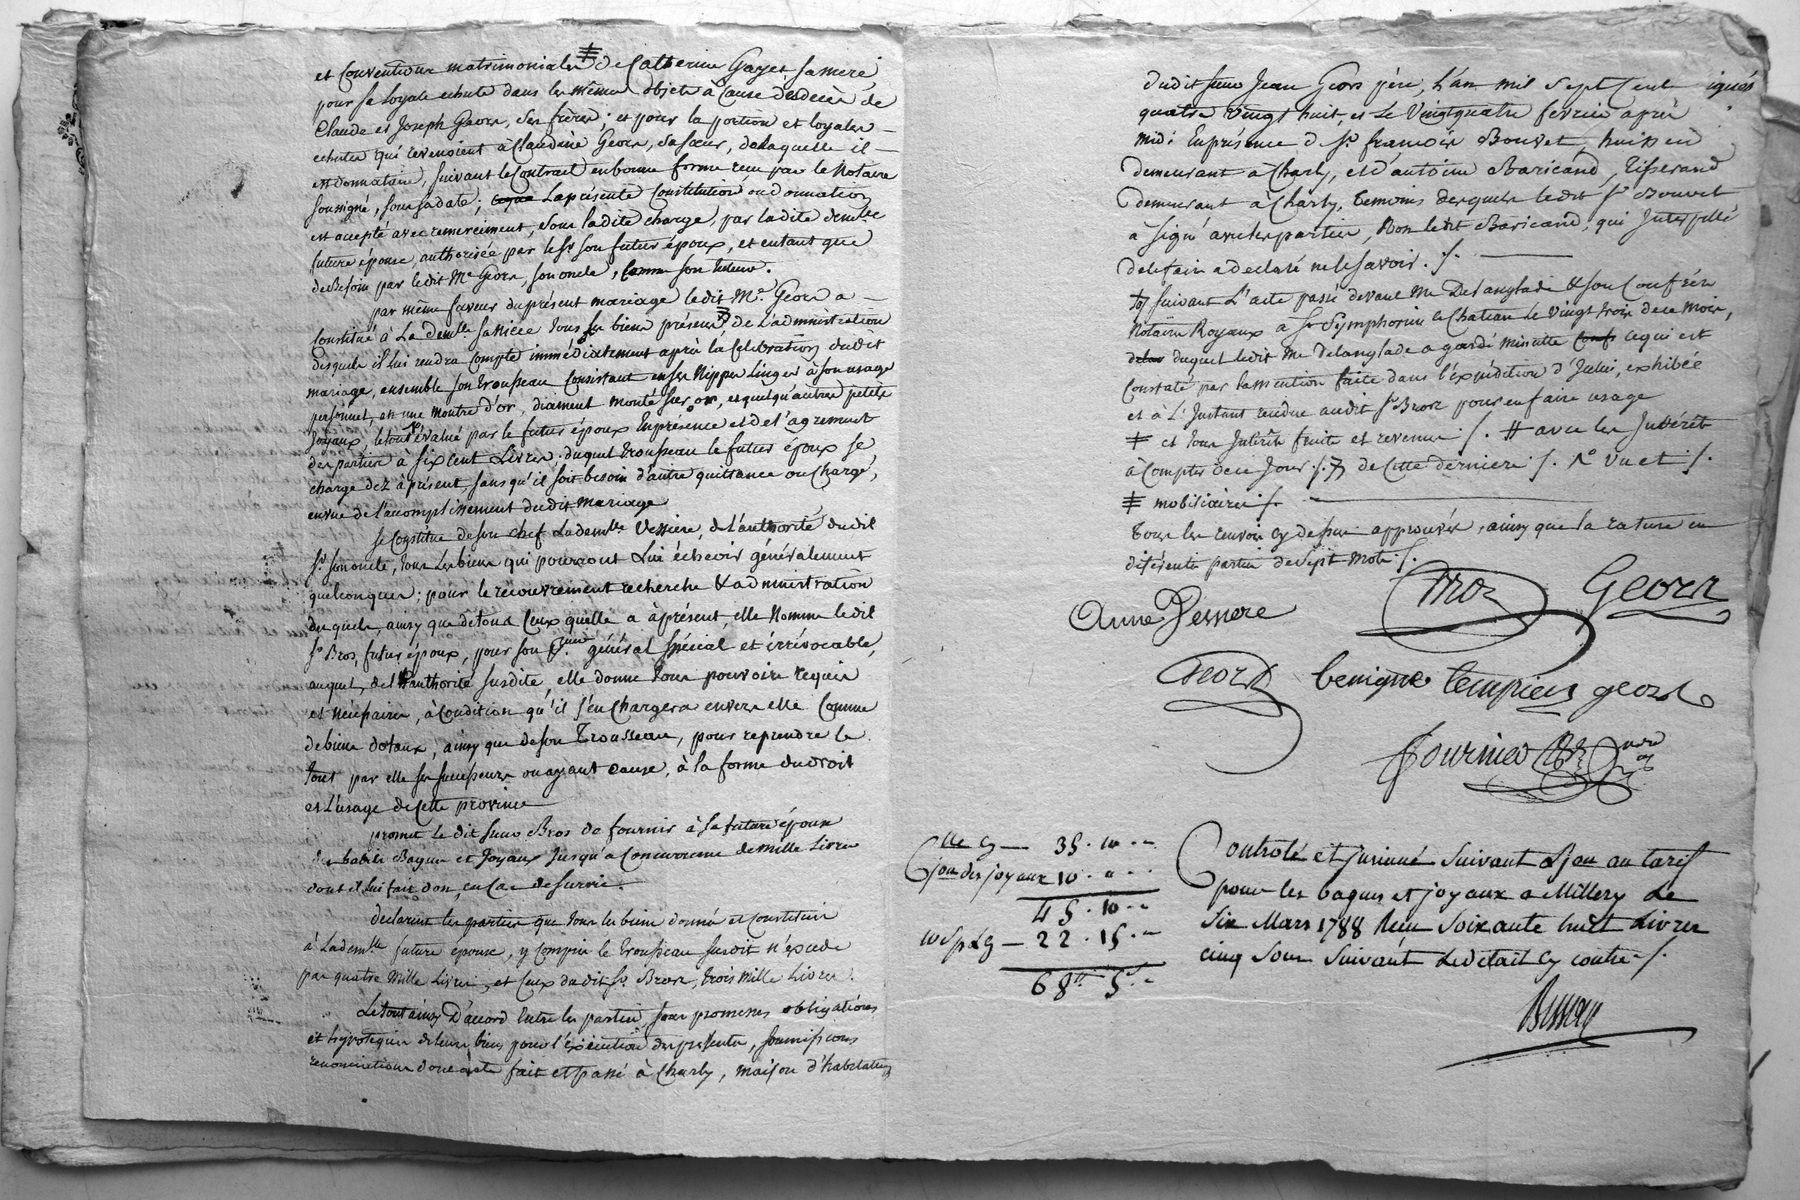 et Conventions matrimoniales ⧧ de Catherine Gayet sa mere
pour sa loyale echute dans les mêmes objets à Cause du decès de
Claude et Joseph Geors, ses frères; et pour la portion et loyales
echutes qui revenoient à Claudine Geors, sa sœur, de laquelle il
est donnataire, suivant le Contrat en bonne forme reçu par le Notaire
soussigné, sous sa date; La présente Constitution ou donnation
est accepté avec remerciment, sous ladite charge, par ladite demlle
future épouse, authorisée par le sr son futur époux, et entant que
de besoin par ledit Me Geors, son oncle, comme son tuteur.
par même faveur du présent mariage ledit Me. Geors a
Constitué à La demlle sa niece tous ses biens présens, de L'administration
desquels il lui rendra Compte immédiatement après la Celebration dudit
mariage, ensemble son trousseau Consistant en ses Nippes Linges à son usage
personnel, en une montre d'or, diament monté sur or, et quelqu'autres petits
Joyaux, le tout évalué par le futur époux En présence et de l'agrement
des parties à six Cent Livres. duquel trousseau le futur époux se
charge dez à présent, sans qu'il soit besoin d'autre quittance ou Charge,
en vue de l'accomplissement dudit Mariage
se Constitue de son chef La demlle Vessiere, de L'authorité dudit
sr. son oncle, tous les biens qui pourront Lui échoir généralement
quelconques; pour le recouvrement recherche & administration
desquels, ainsy que de tous Ceux qu'elle a à présent, elle Nomme ledit
sr Bros, futur époux, pour son général spécial et irrévocable,
auquel, de l'authorité susdite, elle donne tous pouvoirs requis
et Nécessaires, à Condition qu'il s'en Chargera envers elle Comme
de biens dotaux, ainsy que de son Trousseau, pour reprendre le
tout par elle ses successeurs ou ayant cause, à la forme du droit
et L'usage de Cette province
promet le dit sieur Bros de fournir à sa future épouse
des habits Bagues et Joyaux Jusqu'a Concurrence de mille Livres
dont il lui fait don, en Cas de survie.
declarent les parties que tous les biens donnés et Constitués
à La demlle future épouse, y Compris le Trousseau susdit n'excede
pas quatre mille Livres, et Ceux dudit sr. Bros, trois mille Livres.
Le tout ainsy D'accord Entre les parties sous promesses obligations
et hypoteques de leurs biens pour l'éxécution des présentes, soumissions
renonciations dont acte fait et passé à Charly, maison d'habitation
dudit sieur Jean Geors père, L'an mil sept Cent
quatre vingt huit, et Le Vingtquatre fevrier après
midi En présence de sr. françois Bouvet, huissier
demeurant à Charly, et d'antoine Baricand, Tisserand
demeurant à Charly, temoins desquels ledit sr Bouvet
a signé avec les parties, Non ledit Baricand, qui Interpellé
de le faire a declaré ne le savoir ./.
suivant L'acte passé devant Me Delanglade & son Confrère
Notaires Royaux a St Symphorien le Chateau le Vingt trois de ce Mois,
duquel ledit Me Delanglade a gardé minutte ce qui est
Constaté par la mention faite dans l'expédition d'Icelui, exhibée
et à L'Instant rendue audit sr Bros pour en faire usage
⧧ et tous Interêts fruits et revenus ./. # avec les Interêt
à Compter de ce Jour ./. de Cette derniere ./. vu et ./.
⧧ mobiliaires ./.
Tous les renvois cy dessus approuvés, ainsy que la rature en
diférentes parties de sept mots ./.
Bros Geors
Anne Vessiere
Geors benigne tempier geors
fournier Bros
Clle Cy — 35 . 10 . "
Cion des joyaux 10 . " . "
45 . 10 . "
10 s p Lt — 22 . 15 . "
68lt 5s . "
Controlé et jnsinué suivant et au tarif
pour les bagues et joyaux a Millery Le
Six Mars 1788 Reçu Soixante huit Livres
cinq Sous suivant Le détail cy contre ./.